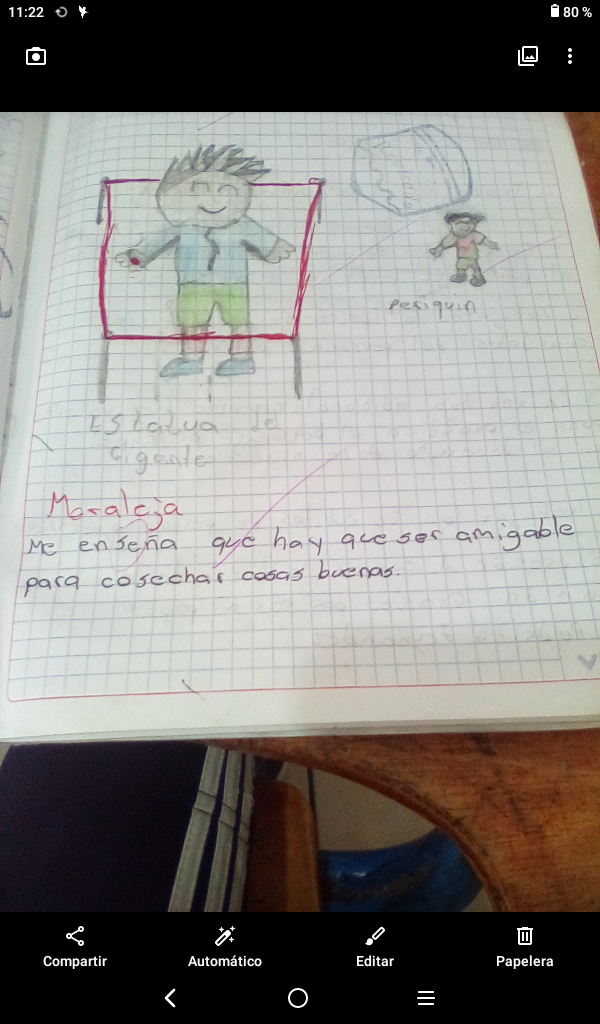 11:22
80 %
Periquin
Estatua del
Gigante
Moraleja
Me enseña que hay que ser amigable
para cosechar cosas buenas.
Compartir
Automático
Editar
Papelera